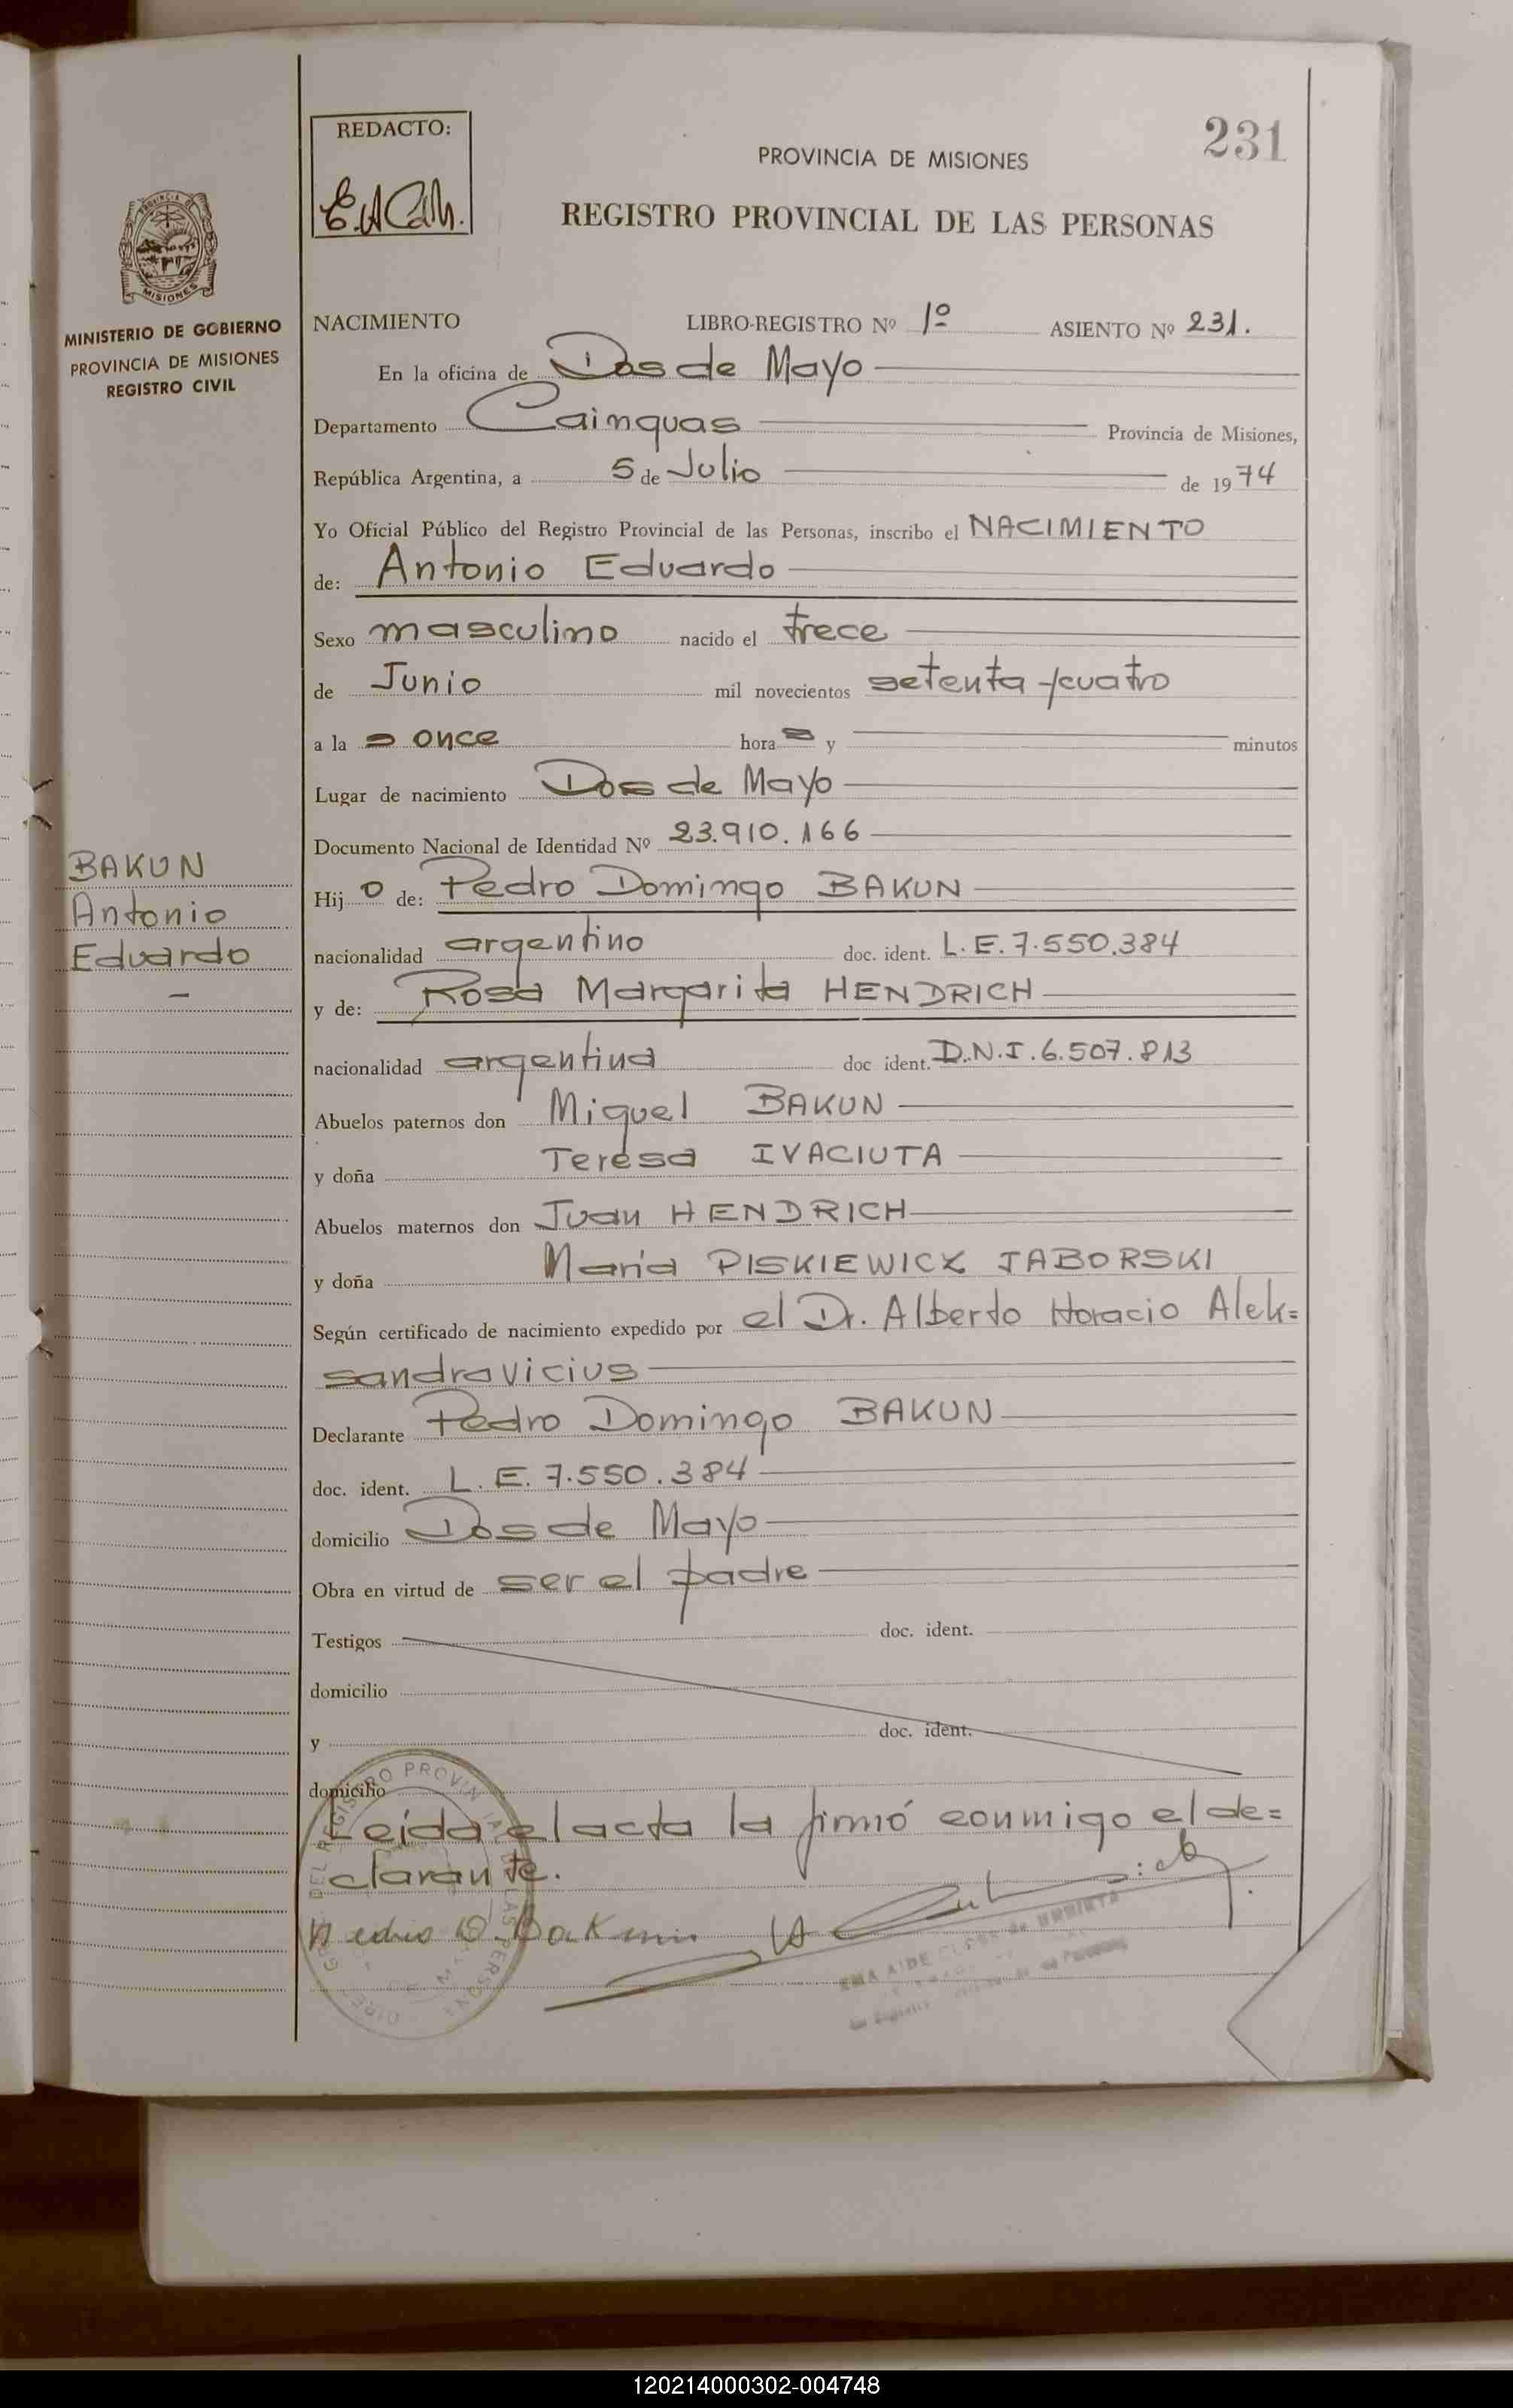 REDACTO:
231
PROVINCIA DE MISIONES
REGISTRO PROVINCIAL DE LAS PERSONAS
MISIONES
MINISTERIO DE GOBIERNO
PROVINCIA DE MISIONES
REGISTRO CIVIL
NACIMIENTO LIBRO-REGISTRO Nº 1º ASIENTO Nº 231.
En la oficina de Dos de Mayo
Departamento Cainguas Provincia de Misiones,
República Argentina, a 5 de Julio de 1974
Yo Oficial Público del Registro Provincial de las Personas, inscribo el NACIMIENTO
de: Antonio Eduardo
Sexo masculino nacido el trece
de Junio mil novecientos setenta y cuatro
a las once horas y minutos
Lugar de nacimiento Dos de Mayo
Documento Nacional de Identidad Nº 23.910.166
BAKUN
Antonio
Eduardo
Hijo de: Pedro Domingo BAKUN
nacionalidad argentino doc. ident. L.E. 7.550.384
y de: Rosa Margarita HENDRICH
nacionalidad argentina doc ident. D.N.I. 6.507.813
Abuelos paternos don Miguel BAKUN
y doña Teresa IVACIUTA
Abuelos maternos don Juan HENDRICH
y doña María PISKIEWICZ JABORSKI
Según certificado de nacimiento expedido por el Dr. Alberto Horacio Alek=
sandravicius
Declarante Pedro Domingo BAKUN
doc. ident. L.E. 7.550.384
domicilio Dos de Mayo
Obra en virtud de ser el padre
Testigos doc. ident.
domicilio
y doc. ident.
domicilio
Leída el acta la firmó conmigo el de=
clarante.
Pedro D. Bakun
120214000302-004748